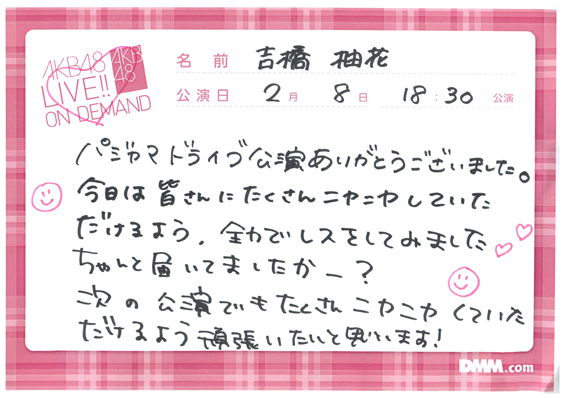 AKB48
LIVE!!
ON DEMAND
AKB
48
名前 吉橋 柚花
公演日 2月 8日 18:30 公演
パジャマドライブ公演ありがとうございました。
今日は皆さんにたくさんニヤニヤしていた
だけるよう、全力でレスをしてみました
ちゃんと届いてましたかー?
次の公演でもたくさんニヤニヤしていた
だけるよう頑張いたいと思います!
DMM.com